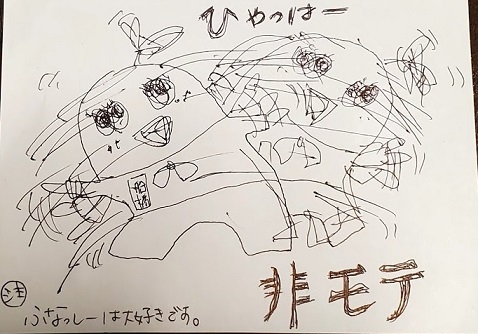 ひゃっはー
船橋
非モテ
注
ふなっしーは大好きです。